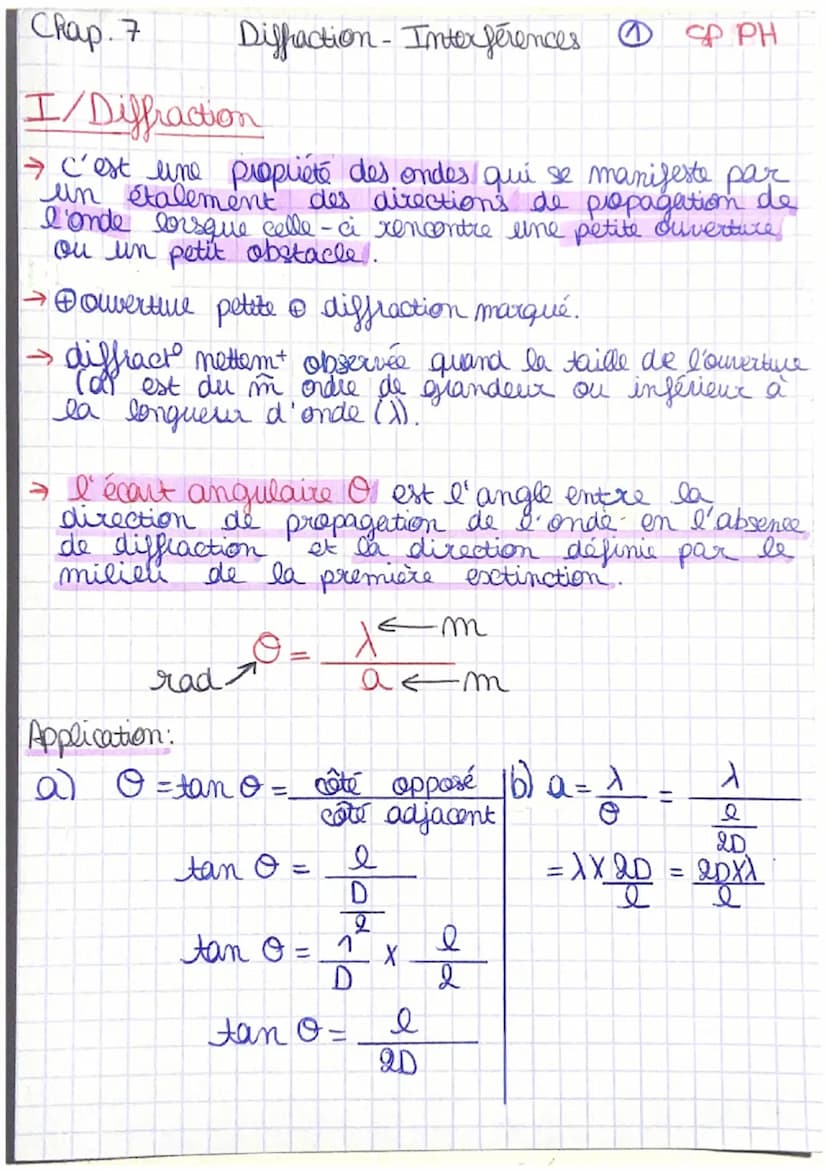 Chap. 7 Diffraction - Interférences ① SP PH
I/Diffraction
→ c'est une propriété des ondes qui se manifeste par
un étalement des directions de propagation de
l'onde lorsque celle-ci rencontre une petite ouverture
ou un petit obstacle.
→ ⊕ ouverture petite ⊕ diffraction marqué.
→ diffract° nettemt observée quand la taille de l'ouverture
(a) est du m̂ ordre de grandeur ou inférieur à
la longueur d'onde (λ).
→ l'écart angulaire θ est l'angle entre la
direction de propagation de l'onde en l'absence
de diffraction et la direction définie par le
milieu de la première extinction.
θ = λ/a
rad m m
Application:
a) θ = tan θ = côté opposé / côté adjacent
tan θ = l / D / 2
tan θ = 1/D × l/2
tan θ = l/2D
b) a = λ/θ = λ / (l/2D)
= λ × 2D/l = 2D×λ/l